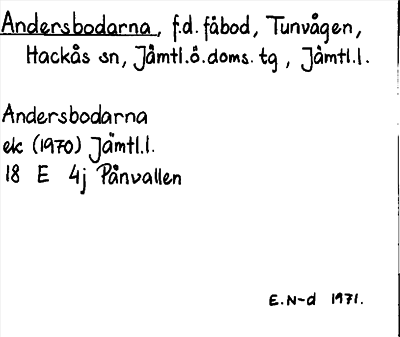 Andersbodarna, f.d. fåbod, Tunvågen,
Hackås sn, Jämtl.ö.doms.tg, Jämtl.l.
Andersbodarna
ek (1970) Jämtl.l.
18 E 4j Pånvallen
E.N-d 1971.